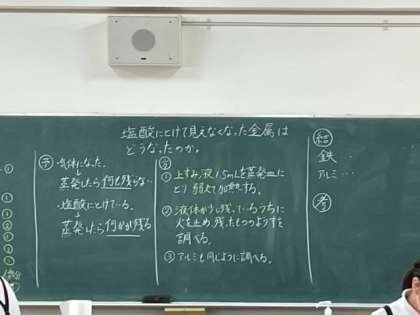 塩酸にとけて見えなくなった金属は
どうなったのか。
予
・気体になった。
↓
蒸発したら何も残らない
・塩酸にとけている。
↓
蒸発したら何かが残る
①上ずみ液1.5mLを蒸発皿に
とり弱火で加熱する。
②液体が少し残っているうちに
火を止め、残ったもののようすを
調べる。
③アルミも同じように調べる。
結
鉄…
アルミ…
考